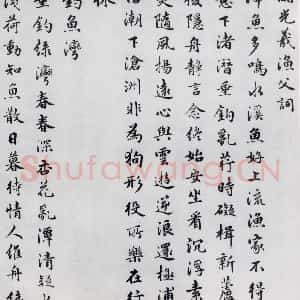 光羲漁父詞
澤魚多鳴水溪魚好上流漁家不得
意下渚潛垂鈎亂荇時礙楫新蘆
復隱舟靜言念終始安坐看沉浮素
髮隨風揚遠心與雲遊逆浪還極浦
信潮下滄洲非為狥形役所樂在行
休
釣魚灣
垂釣綠灣春春深杏花亂潭清疑水
淺荷動知魚散日暮待情人維舟綠
Shufawang.CN